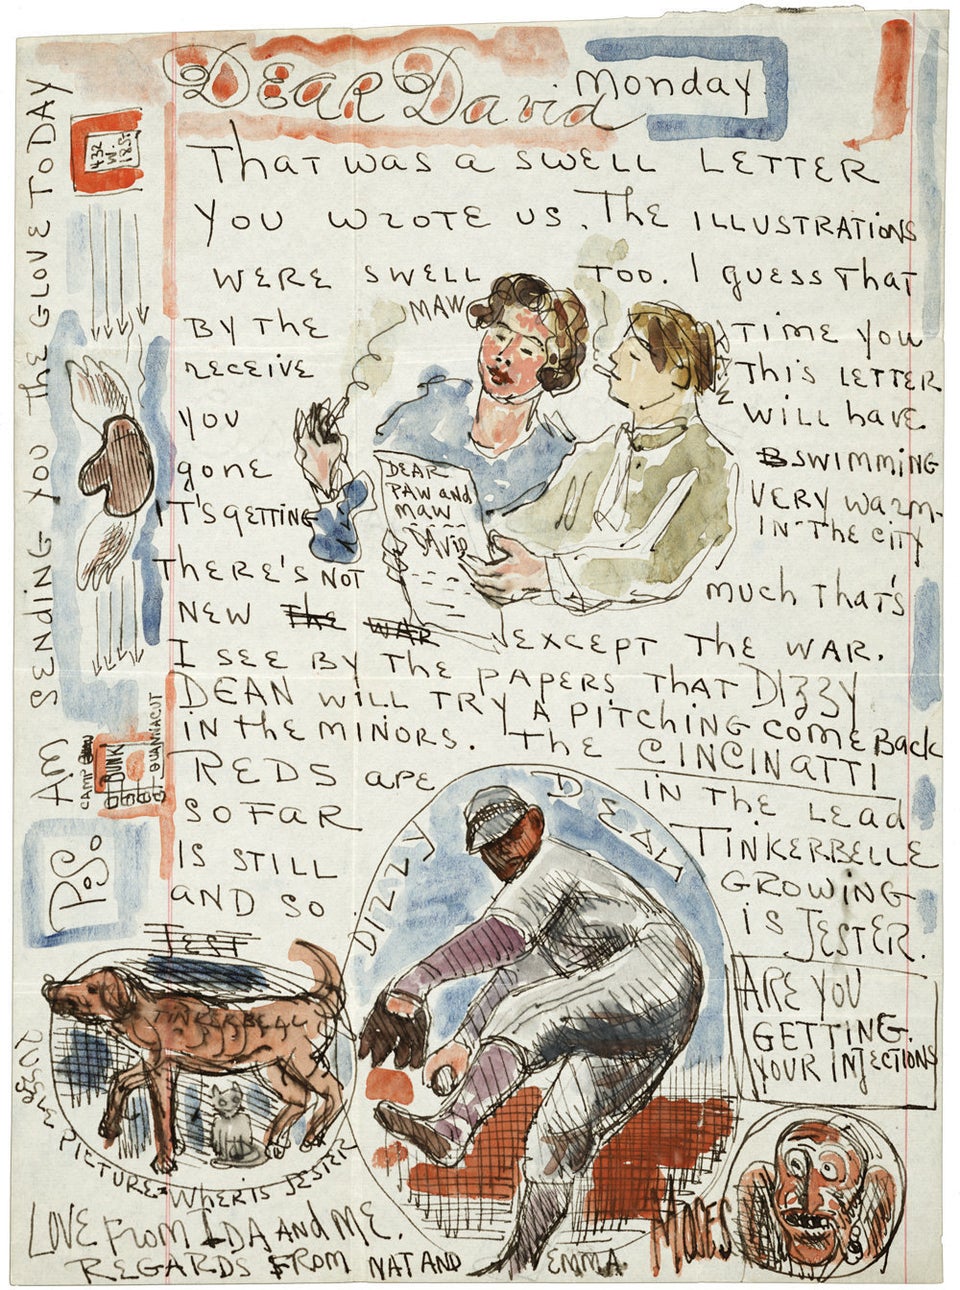 DEAR David Monday
That was a swell LETTER
you wrote us. The ILLUSTRATIONS
were swell too. I guess that
MAW
By the time you
receive This LETTER
you will have
gone swimming
IT'S GETTING VERY warm
IN THE CITY
THERE'S NOT much that's
NEW The WAR EXCEPT THE WAR.
I SEE BY The PAPERS THAT DIZZY
DEAN WILL TRY A PITCHING COME Back
IN the MINORS. The CINCINATTI
REDS ARE IN THE LEAD
SO FAR TINKERBELLE
IS STILL GROWING
AND SO IS JESTER.
DEAR
PAW and
MAW
DAVID
DIZZY DEAN
ARE YOU
GETTING
YOUR INJECTIONS
JEST
TINKERBELL
PUZZLE PICTURE - WHER IS JESTER
MOSES
LOVE FROM IDA AND ME.
REGARDS FROM NAT AND EMMA
AM SENDING YOU THE GLOVE TODAY
432
W.
18 ST
CAMP
BUNK
P.S.